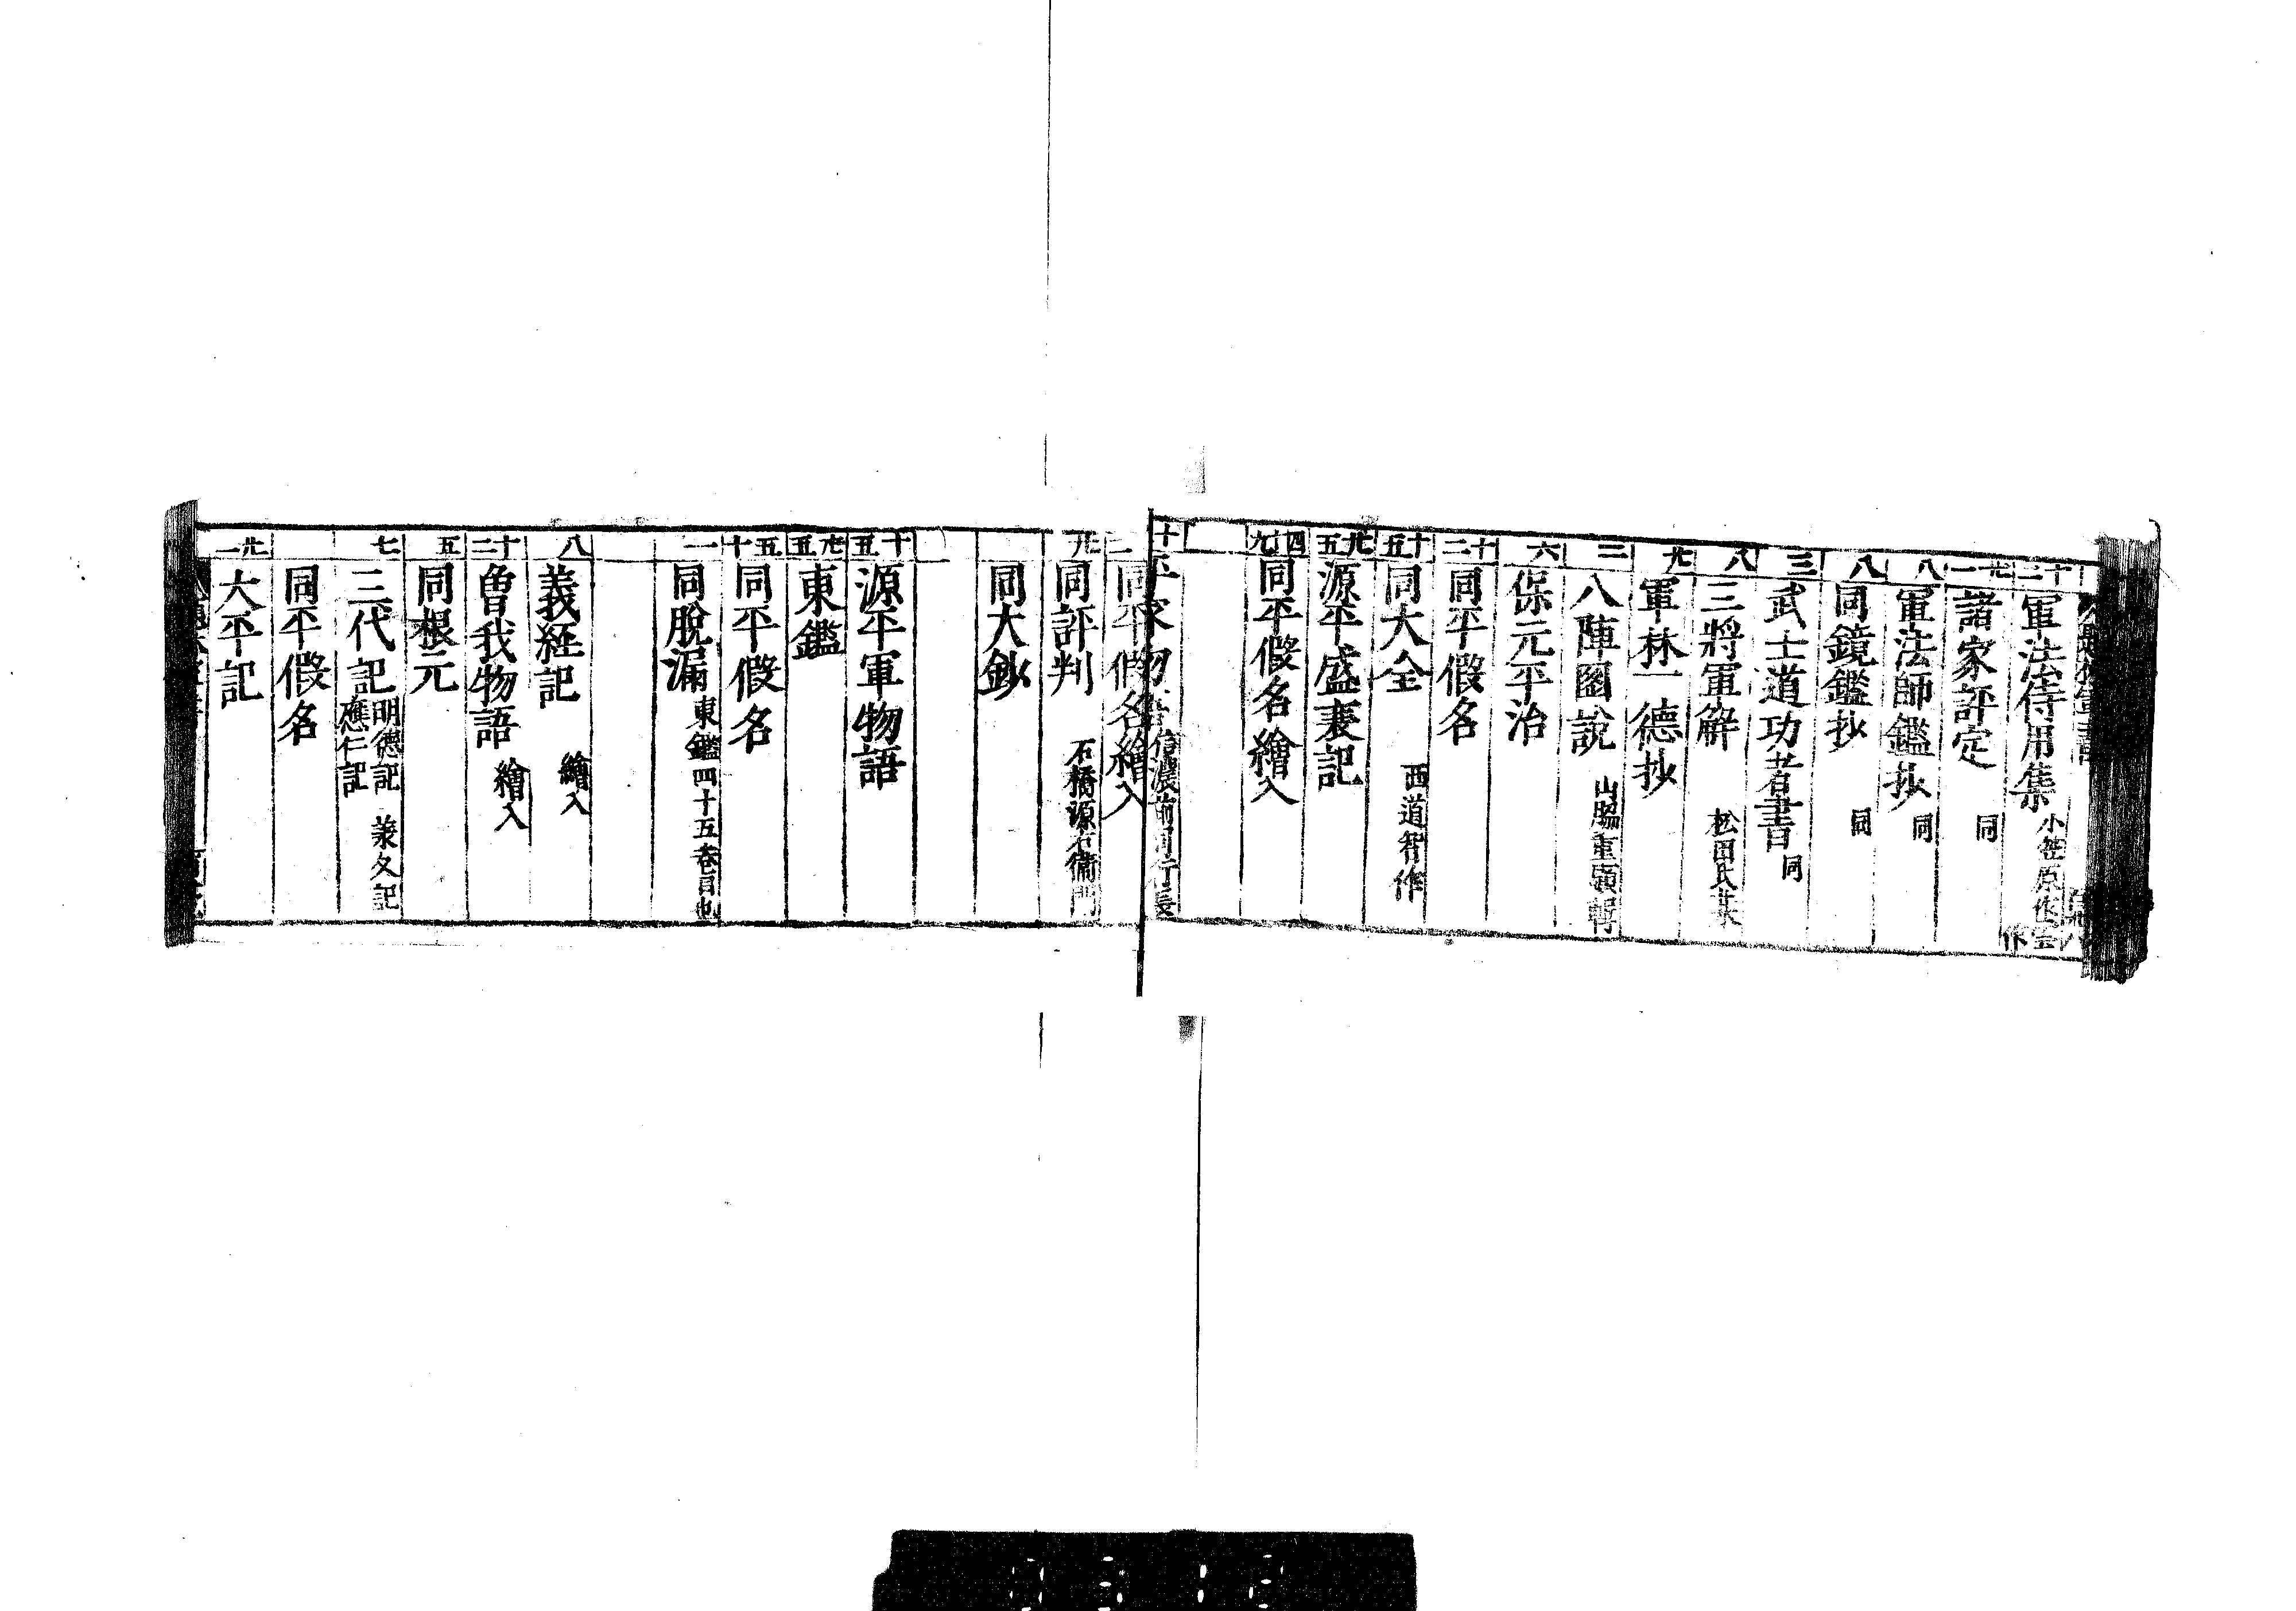 十二 軍法侍用集 小笠原作雲作
廿一 諸家評定 同
八 軍法師鑑抄 同
八 同鏡鑑抄 同
三 武士道功者書 同
八 三將軍解 松田氏
廿 軍林一德抄
三 八陣圖說 山脇重顯
六 保元平治
十二 同平假名
十五 同大全 西道智作
廿五 源平盛衰記
四十九 同平假名繪入
十 平家物語 信濃前司行長
十二 同平假名繪入
廿 同評判 石橋源右衞門
同大鈔
十五 源平軍物語
廿五 東鑑
五十 同平假名
一 同脫漏 東鑑四十五巻目也
八 義経記 繪入
十二 曾我物語 繪入
五 同根元
七 三代記 明德記 應仁記 羕久記
同平假名
廿一 大平記